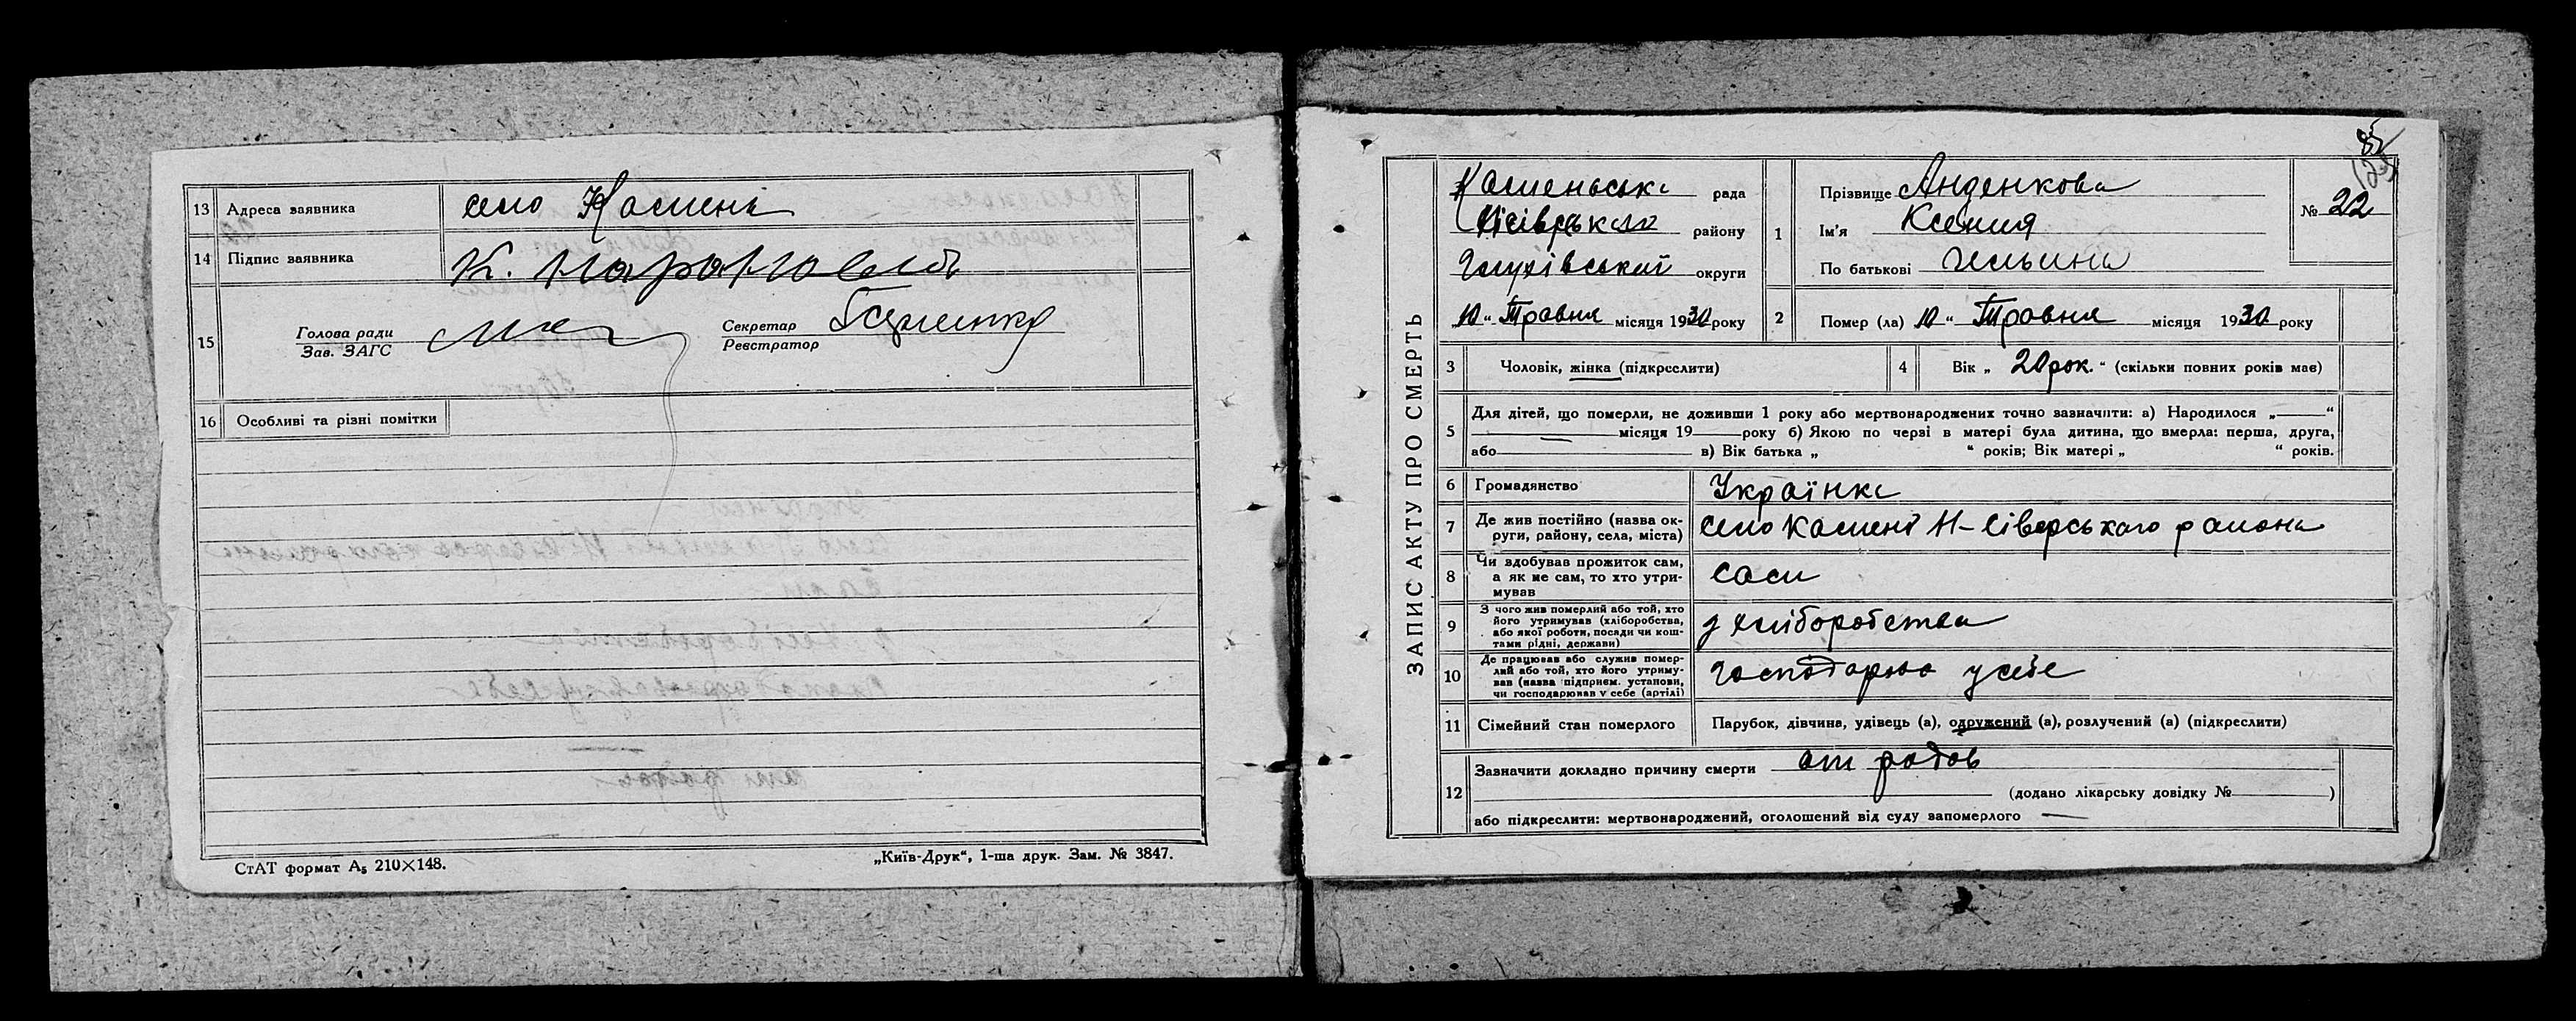 13 Адреса заявника село Камень
14 Підпис заявника К.
15 Голова ради
Зав. ЗАГС
Секретар
Реєстратор
16 Особливі та різні помітки
СтАТ формат А₅ 210×148.
„Київ-Друк“, 1-ша друк. Зам. № 3847.
85
ЗАПИС АКТУ ПРО СМЕРТЬ
Каменьська рада
Сіверського району
Глухівської округи
„10“ Травня місяця 1930 року
1 Прізвище Анденкова
Ім'я Ксения
По батькові Ильина
№ 22
2 Помер (ла) 10 “ Травня місяця 1930 року
3 Чоловік, жінка (підкреслити)
4 Вік „ 20 рок. “ (скільки повних років мав)
5 Для дітей, що померли, не доживши 1 року або мертвонароджених точно зазначити: а) Народилося „ — “
місяця 19 — року б) Якою по черзі в матері була дитина, що вмерла: перша, друга,
або в) Вік батька „ “ років; Вік матері „ “ років.
6 Громадянство Українка
7 Де жив постійно (назва ок-
руги, району, села, міста) село Камень Н-Сіверського района
8 Чи здобував прожиток сам,
а як не сам, то хто утри-
мував сами
9 З чого жив померлий або той, хто
його утримував (хліборобства,
або якої роботи, посади чи кош-
тами рідні, держави) з хліборобства
10 Де працював або служив помер-
лий або той, хто його утриму-
вав (назва підприєм. установи,
чи господарював у себе (артілі) господарюв у себе
11 Сімейний стан померлого Парубок, дівчина, удівець (а), одружений (а), розлучений (а) (підкреслити)
12 Зазначити докладно причину смерти от родов
(додано лікарську довідку № )
або підкреслити: мертвонароджений, оголошений від суду запомерлого —